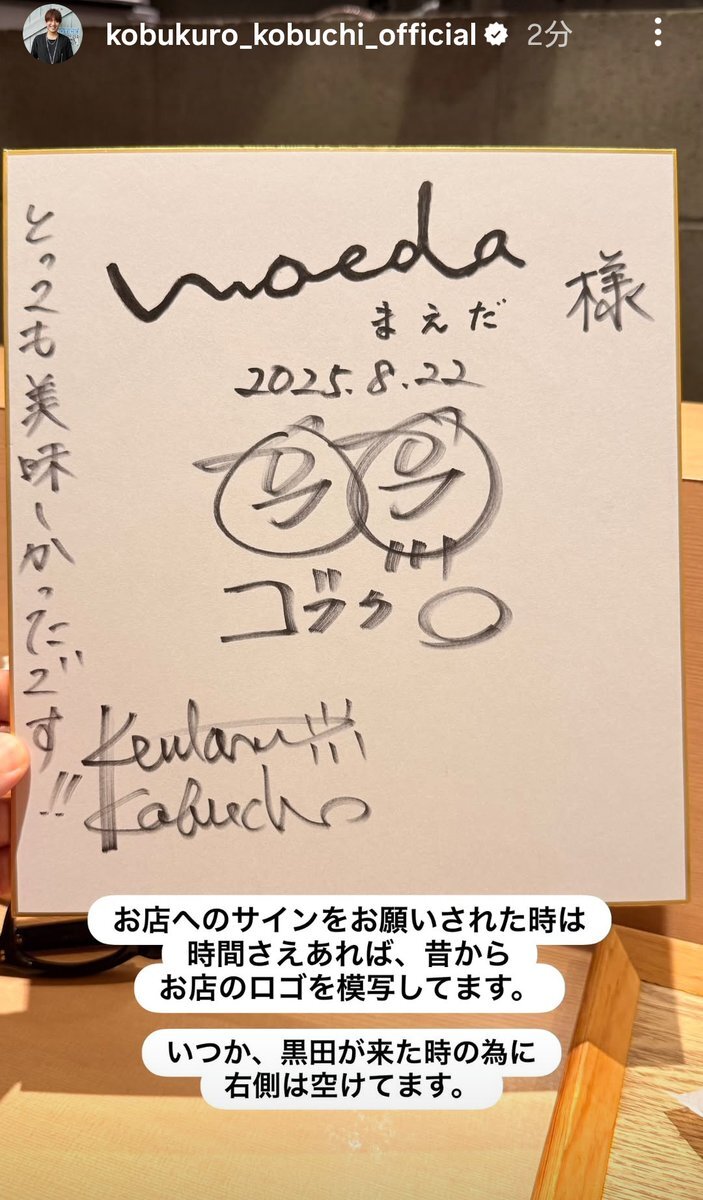 kobukuro_kobuchi_official 2分
とっても美味しかったです!!
maeda 様
まえだ
2025.8.22
コブクロ
Kentaro
Kobuchi
お店へのサインをお願いされた時は
時間さえあれば、昔から
お店のロゴを模写してます。
いつか、黒田が来た時の為に
右側は空けてます。